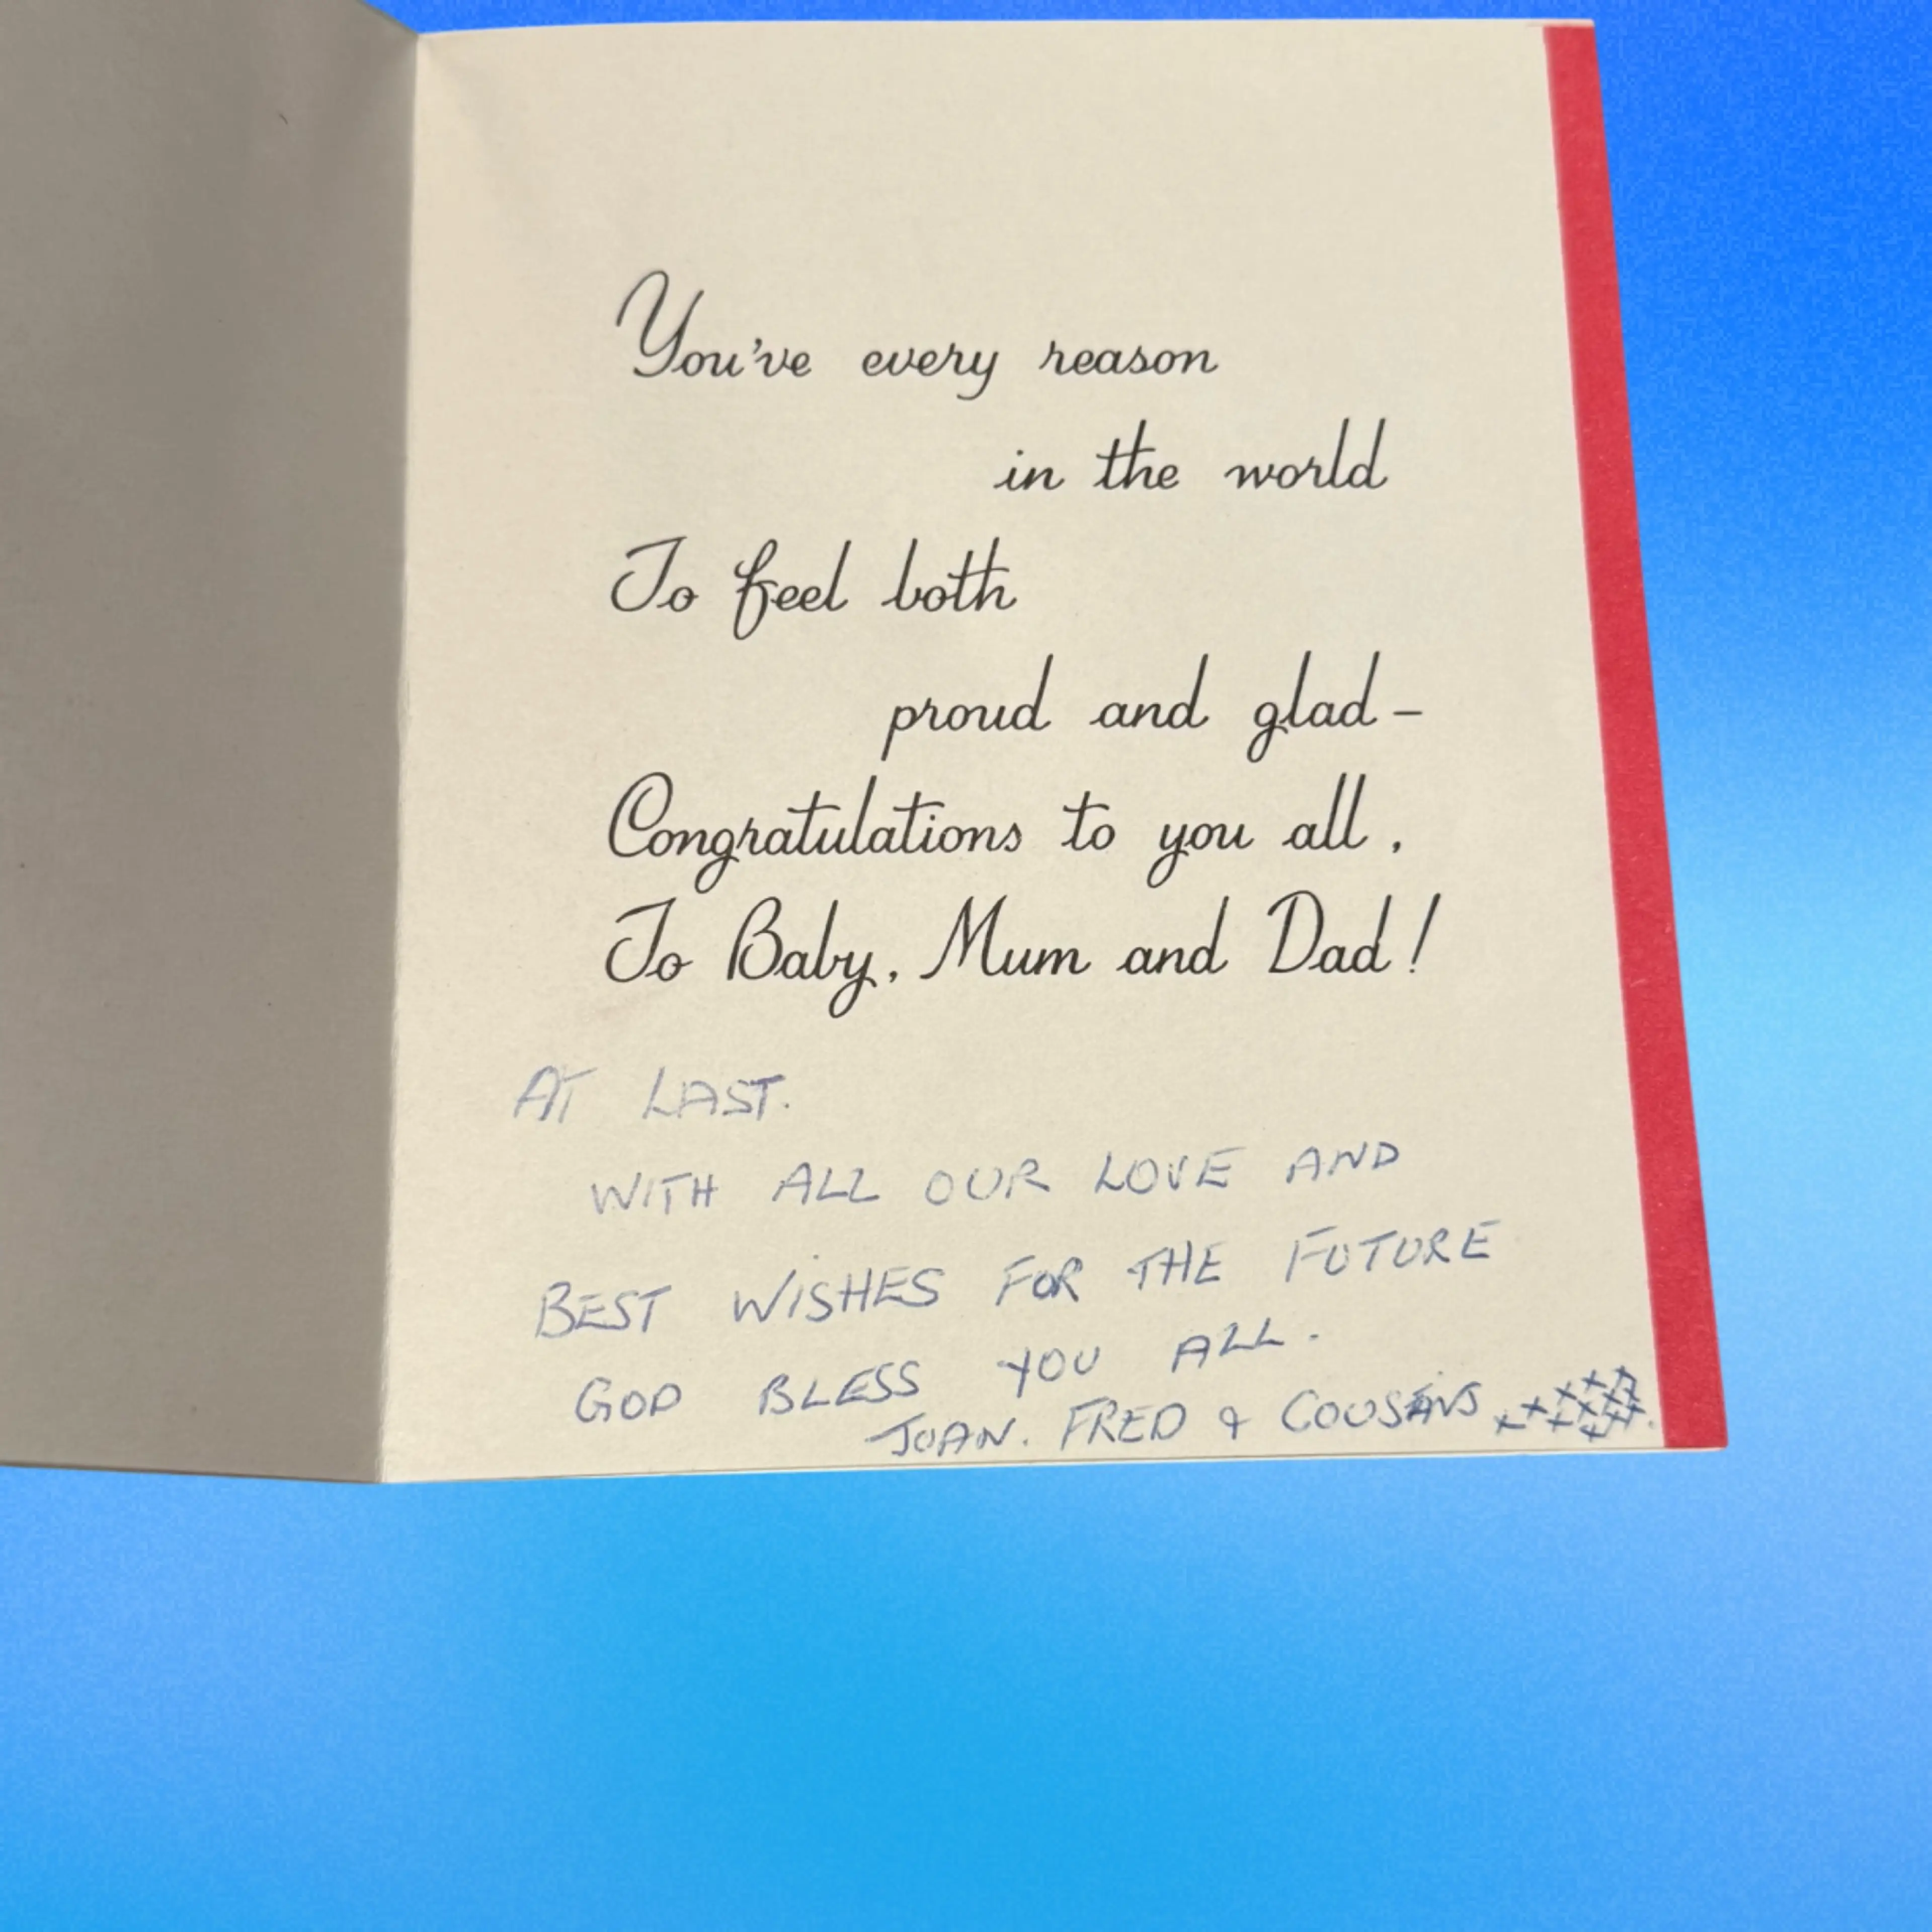 You've every reason
in the world
To feel both
proud and glad –
Congratulations to you all,
To Baby, Mum and Dad!
AT LAST.
WITH ALL OUR LOVE AND
BEST WISHES FOR THE FUTURE
GOD BLESS YOU ALL.
JOAN. FRED & COUSINS xxxxxxxxxxx.